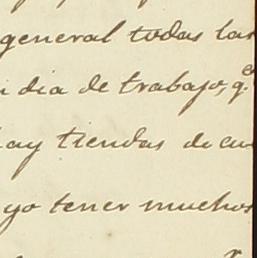 general todas las
dia de trabajo, q.e
hay tiendas de cu
yo tener muchos